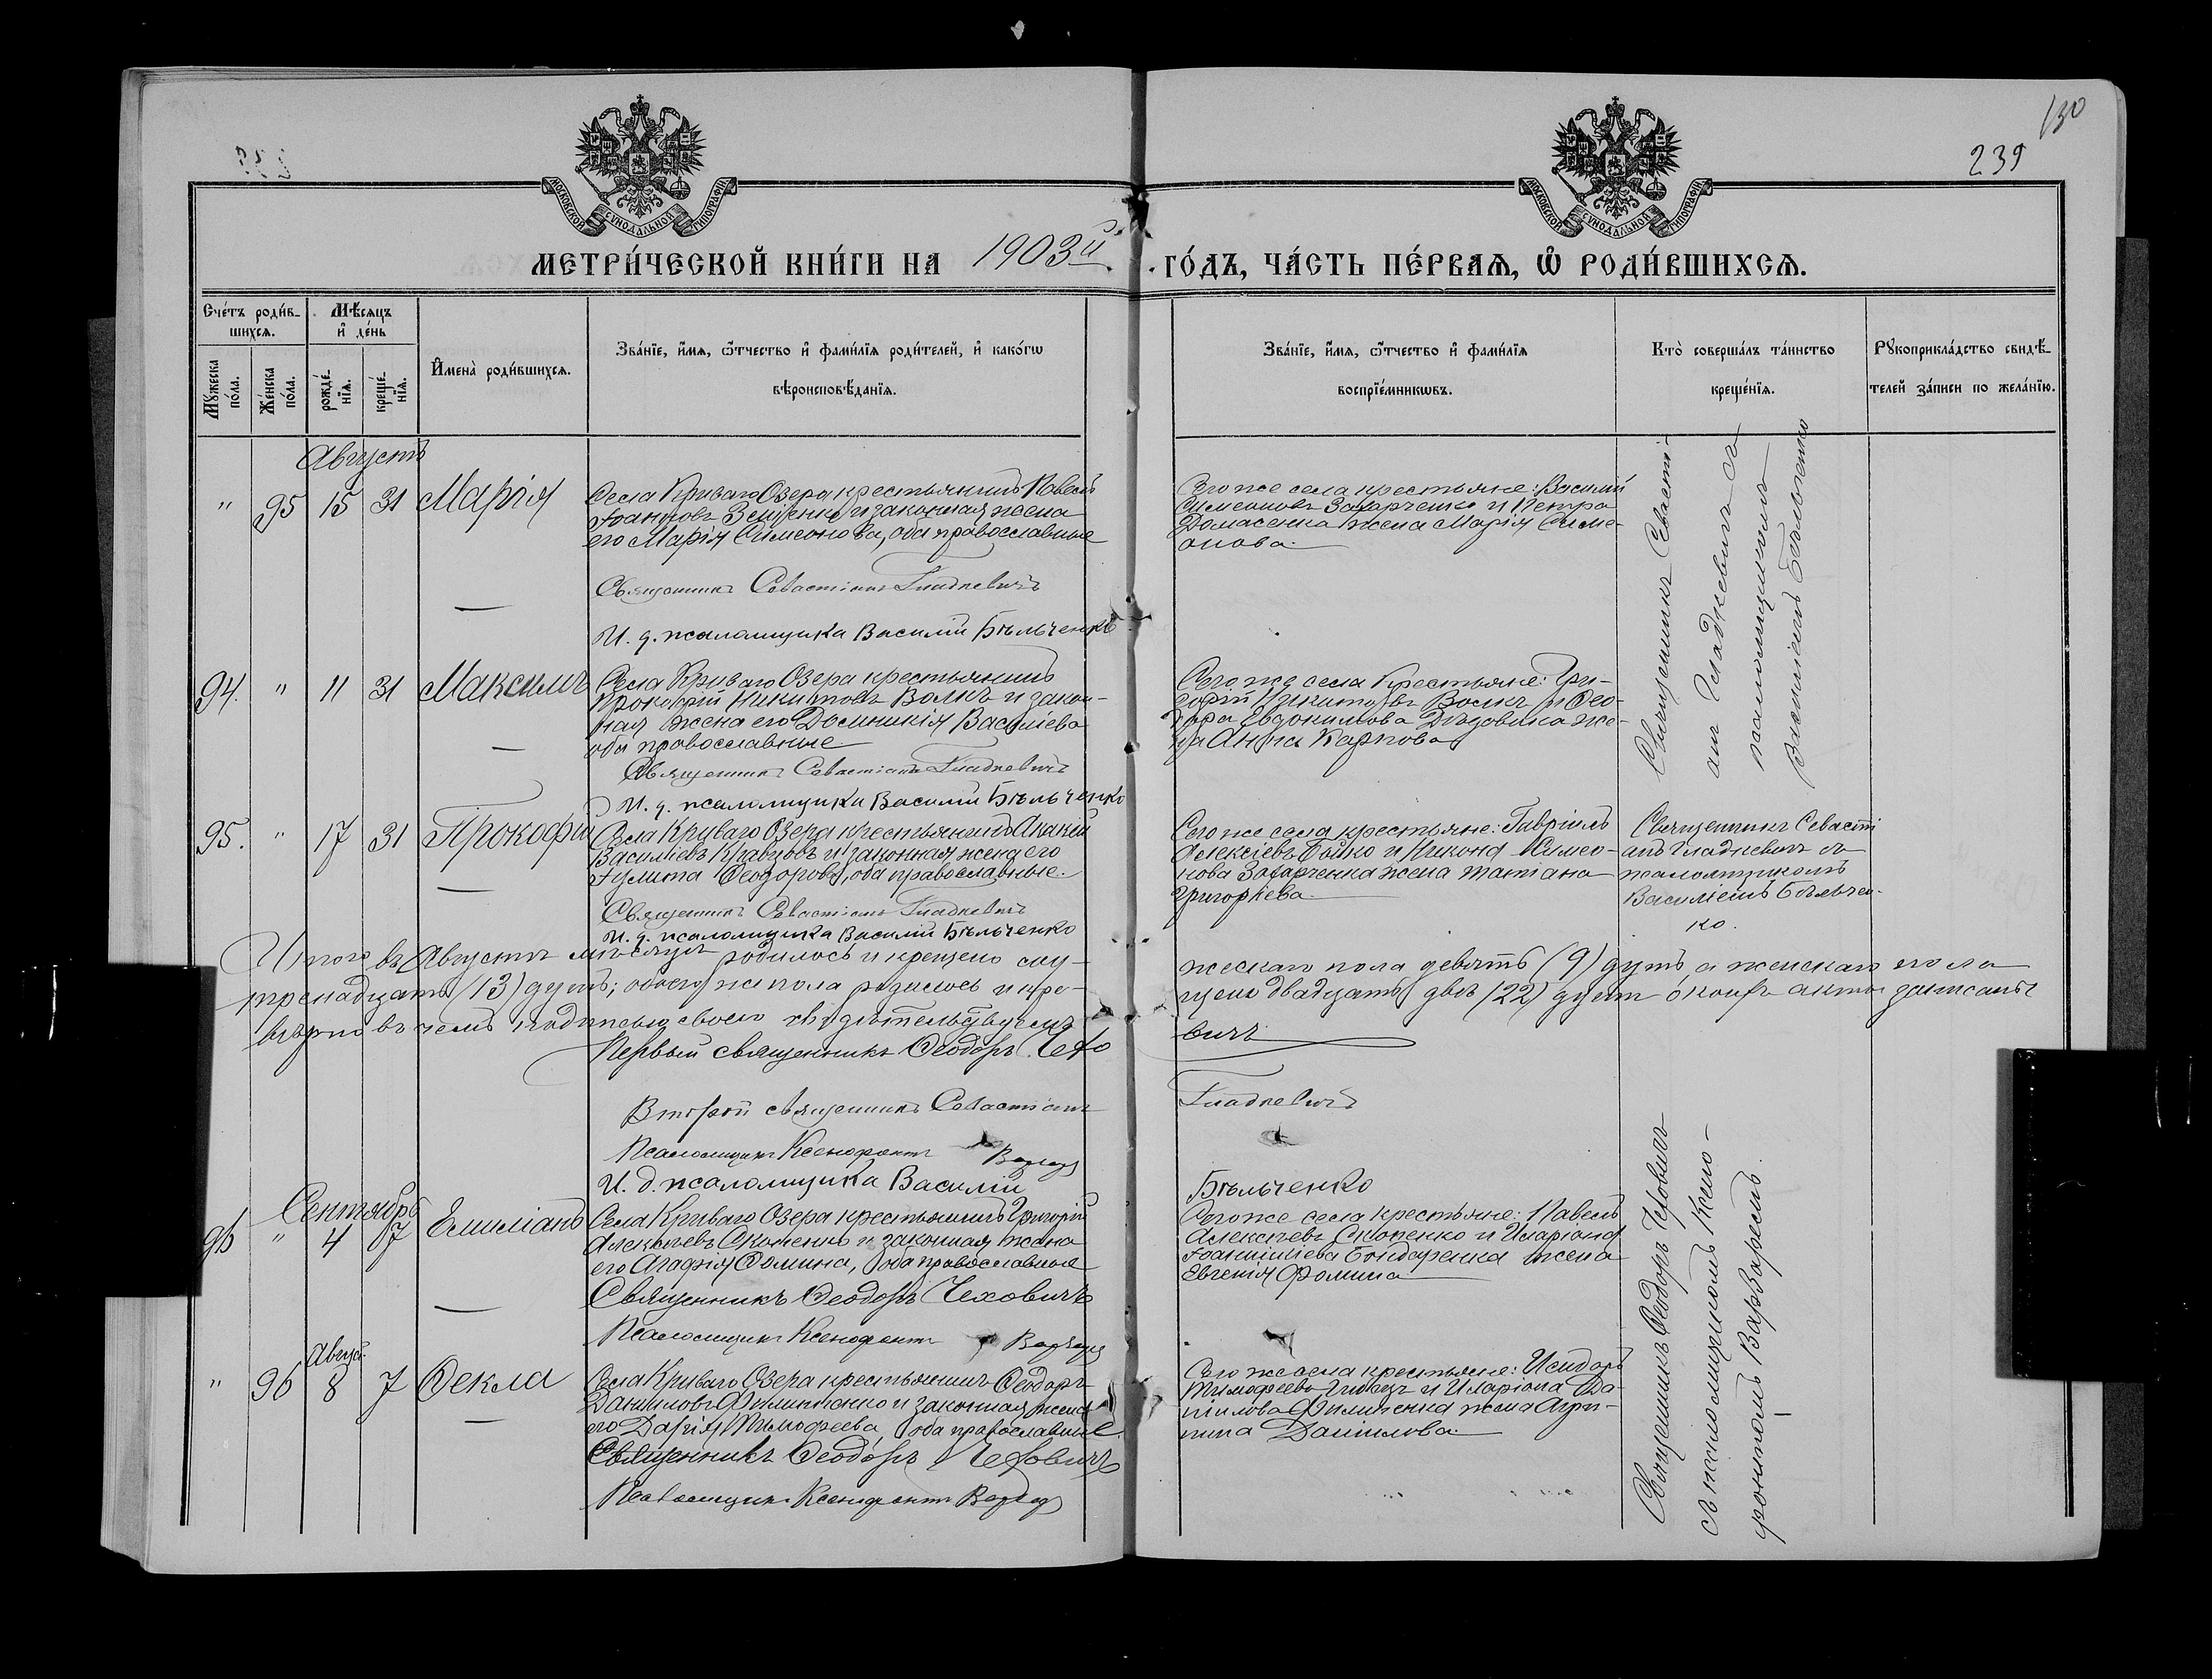 130
239
МОСКОВСКОЙ СѴНОДАЛЬНОЙ ТИПОГРАФІИ
МОСКОВСКОЙ СѴНОДАЛЬНОЙ ТИПОГРАФІИ
МЕТРИ́ЧЕСКОЙ КНИ́ГИ НА 1903й ГО́ДЪ, ЧА́СТЬ ПЕ́РВАѦ, Ѡ҆ РОДИ́ВШИХСѦ.
Сче́тъ роди́в-
шихсѧ.
Мѣ́сѧцъ
и҆ де́нь
Мꙋ́жеска по́ла.
Же́нска по́ла.
рожде́-нїѧ.
креще́-нїѧ.
И҆мена̀ роди́вшихсѧ.
Зва́нїе, и҆́мѧ, ѻ҆́тчество и҆ фами́лїѧ роди́телей, и҆ како́гѡ
вѣроисповѣ́данїѧ.
Зва́нїе, и҆́мѧ, ѻ҆́тчество и҆ фами́лїѧ
воспрїе́мникѡвъ.
Кто̀ соверша́лъ та́инство
креще́нїѧ.
Рꙋкоприкла́дство свидѣ́-
телей за́писи по жела́нїю.
Августъ
" 95 15 31 Марія
Села Криваго Озера крестьянинъ Павелъ
Іоанновъ и законная жена
его Марія Симеонова, оба православные
Священникъ Севастіанъ Гладкевичъ
И. д. псаломщика Василій Бѣльченко
Тогоже села крестьяне: Василій
Симеоновъ Захарченко и Петра
Домасенка жена Марія Симе-
онова.
Священникъ Севасті-
анъ Гладкевичъ съ
псаломщикомъ
Василіемъ Бѣльченко
94. " 11 31 Максимъ
Села Криваго Озера крестьянинъ
Прокофій Никитовъ Волкъ и закон-
ная жена его Домникія Василіева
оба православные
Священникъ Севастіанъ Гладкевичъ
И. д. псаломщика Василій Бѣльченко
Тогоже села крестьяне: Гри-
горій Никитовъ Волкъ и Ѳео-
дора Евдокимова жe-
на Анна Карпова
95. " 17 31 Прокофій
Села Криваго Озера крестьянинъ Акакій
Василіевъ Кравцовъ и законная жена его
Іулита Ѳеодорова, оба православные.
Священникъ Севастіанъ Гладкевичъ
И. д. псаломщика Василій Бѣльченко
Тогоже села крестьяне: Гавріилъ
Алексіевъ Бойко и Никона Симео-
нова Захарченка жена Татіана
Григоріева
Священникъ Севасті
анъ Гладкевичъ съ
псаломщикомъ
Василіемъ Бѣльчен-
ко.
Итого въ Августѣ мѣсяцѣ родилось и крещено му-
жескаго пола девять (9) душъ, а женскаго пола
тренадцать (13) душъ; обоего же пола родилось и кре-
щено двадцать двѣ (22) души о коихъ акты записаны
вѣрно въ чемъ подписью своею свидѣтельствуемъ
Первый священникъ Ѳеодоръ Чехо
вичъ
Второй священникъ Севастіанъ
Гладкевичъ
Псаломщикъ Ксенофонтъ
И. д. псаломщика Василій
Бѣльченко
Сентябрь
96 " 4 7 Емиліанъ
Села Криваго Озера крестьянинъ Григорій
Алексѣевъ и законная жена
его Агафія Ѳомина, оба православные
Священникъ Ѳеодоръ Чеховичъ
Псаломщикъ Ксенофонтъ
Тогоже села крестьяне: Павелъ
Алексѣевъ и Иларіона
Бондаренка жена
Евгенія Фомина
Священникъ Ѳеодоръ Чеховичъ
съ псаломщикомъ Ксено-
фонтомъ Варваремъ.
Август.
" 96 8 7 Ѳекла
Села Криваго Озера крестьянинъ Ѳеодоръ
Даниловъ Филипенко и законная жена
его Дарія Тимофеева, оба православные
Священникъ Ѳеодоръ Чеховичъ
Псаломщикъ Ксенофонтъ
Тогоже села крестьяне: Исидоръ
Тимофеевъ и Иларіона Да-
нилова Филипенка жена Агри-
пина Данилова